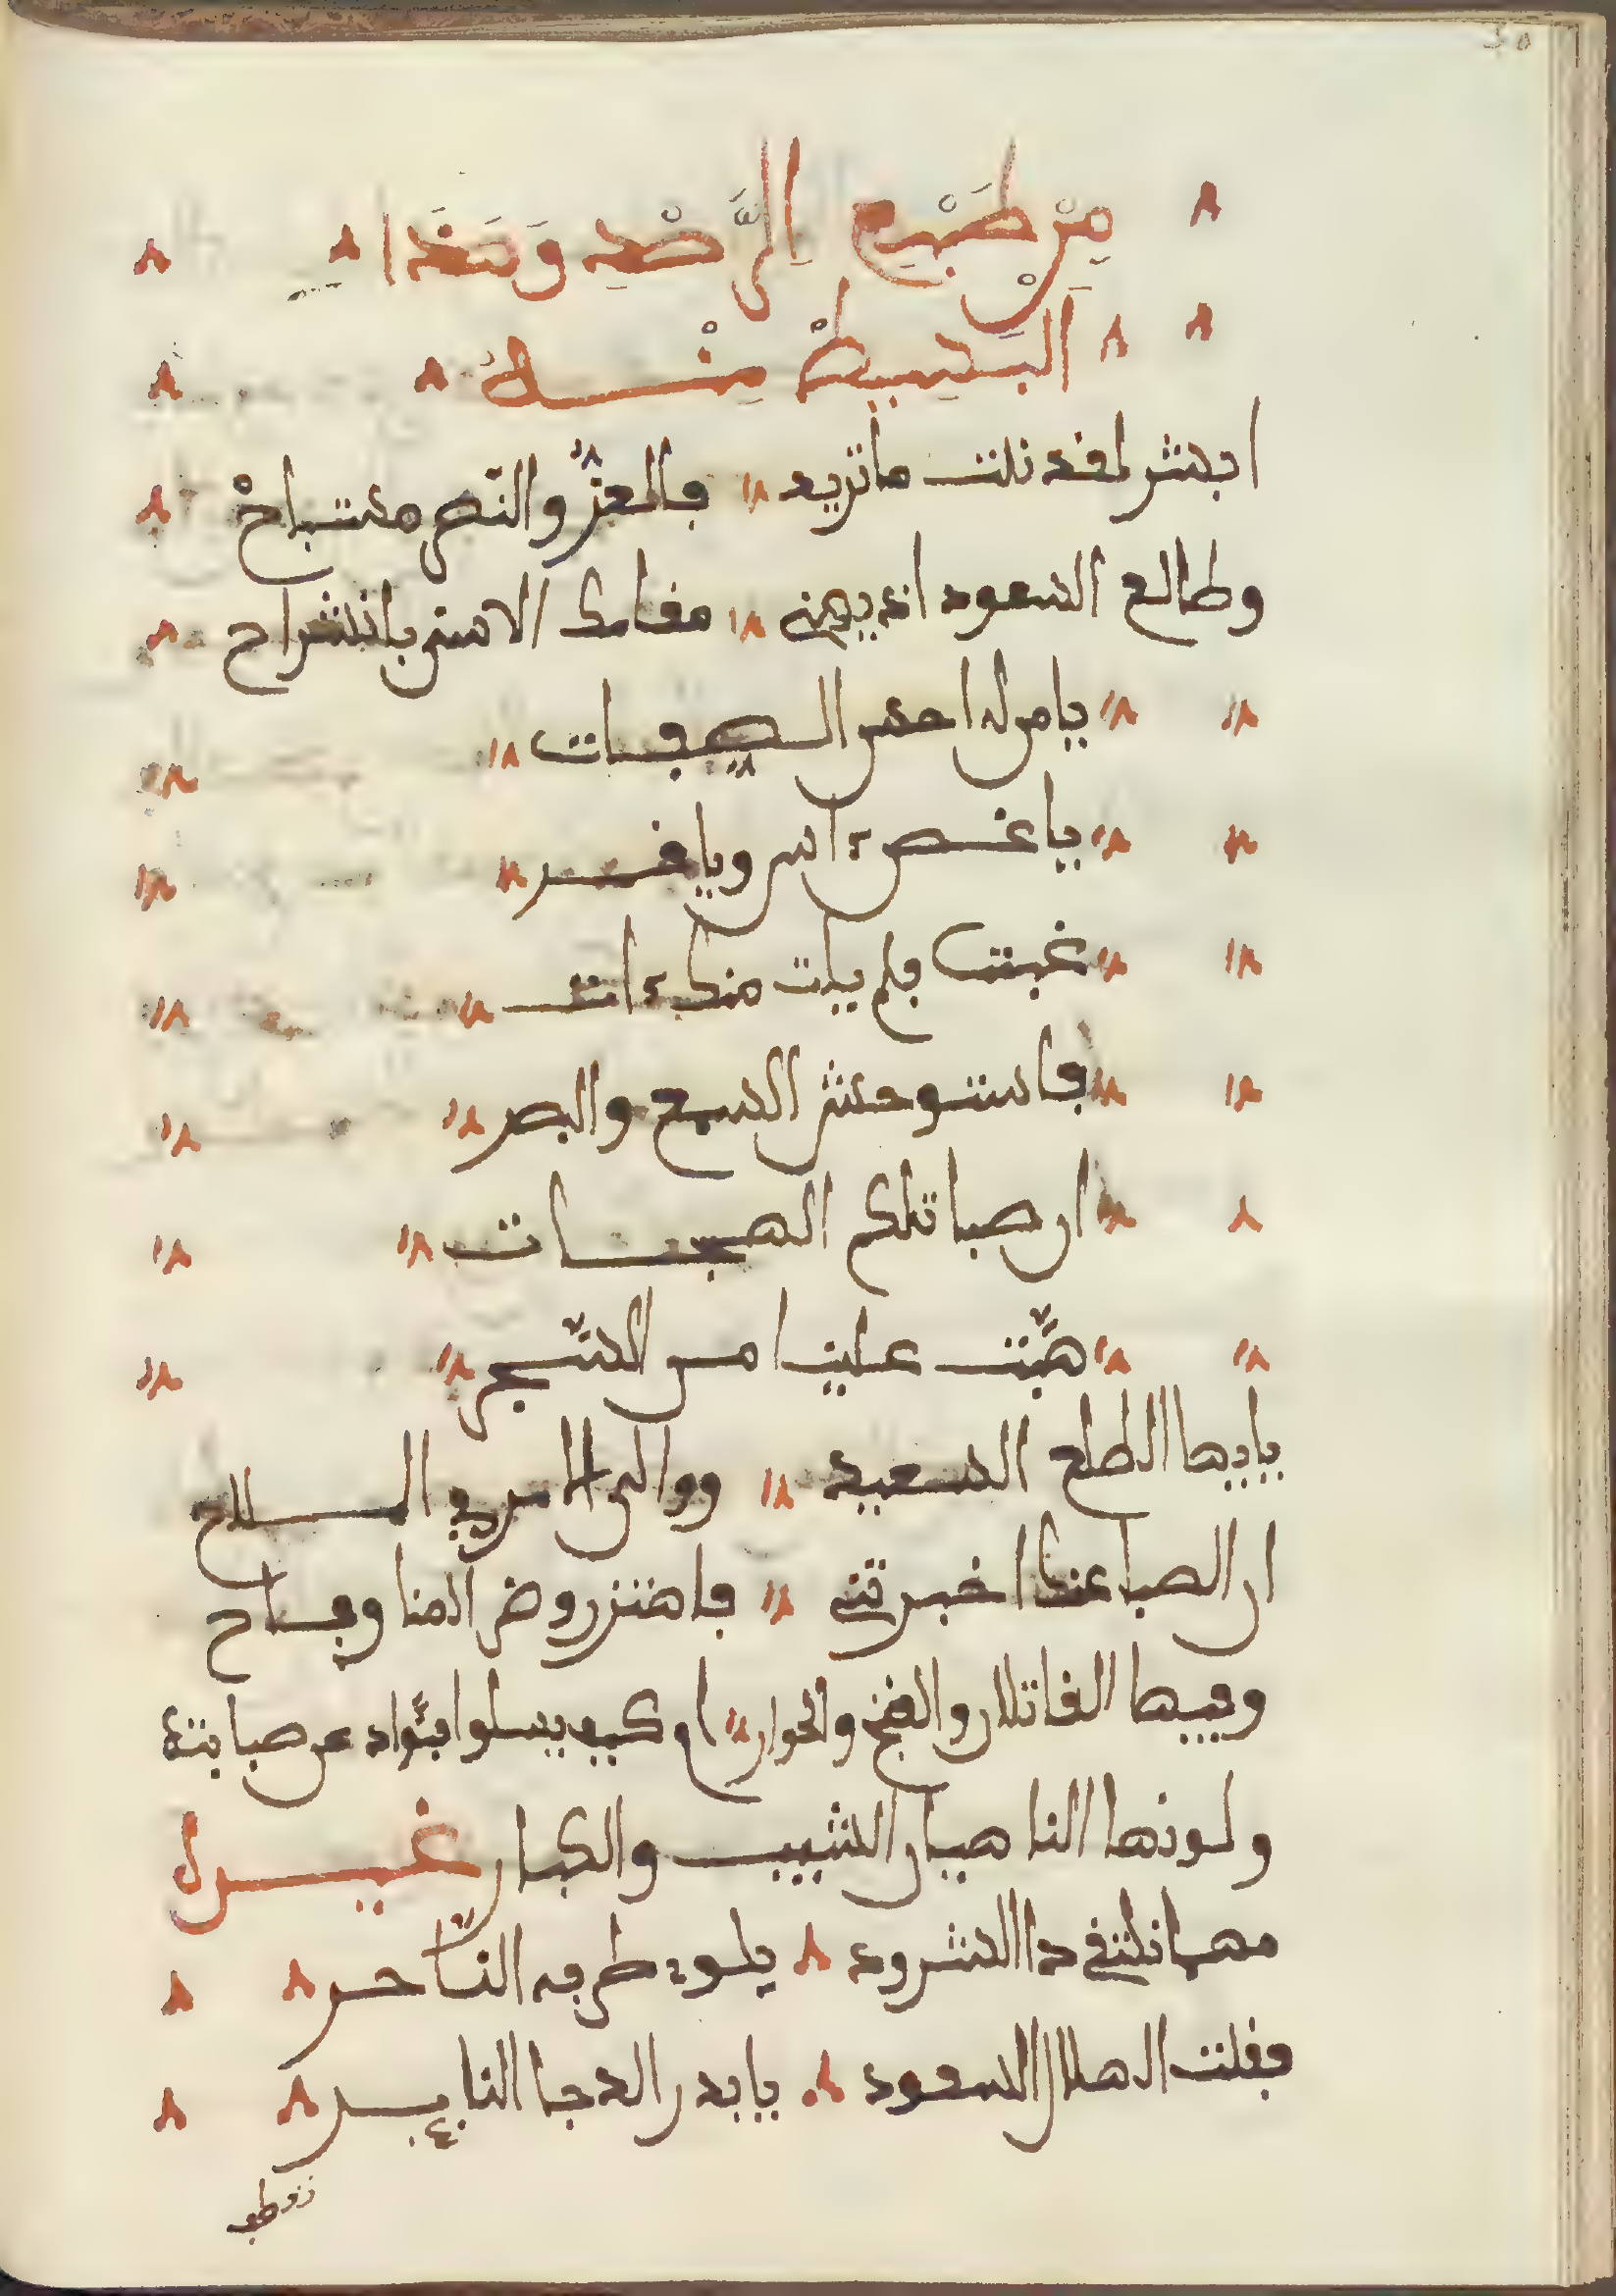 مِنْ طَبْعِ الرَّصْدِ وَهَذَا
البَسِيطْ مِنْــهُ
ابشر لقد نلت ما تريد فالعزّ والنّصر مستباحْ
وطالع السعود اذ يهني مقامك الاسنى بانشراح
يا من له احسن الصفات
يا غصن ءاس ويا قمر
غبت فلم يات منك ءات
فاستوحش السمع والبصر
ان صبا تلكم الهجات
هبّت علينا من السّحر
يايها الطلع السعيد ووالى الامر في السلاح
ان الصبا عنك اخبرتني فاهتز روض المنا وفاح
وفيها القاتلان والغنج والحوار ام كيف يسلوا فؤاد عن صبابته
ولونها الناهبان الشيب والكبار غيره
مهما نلتقي دا الشرود يلوي طرفه النّاحر
فقلت الهلال السعود يا بدر الدجا النايـر